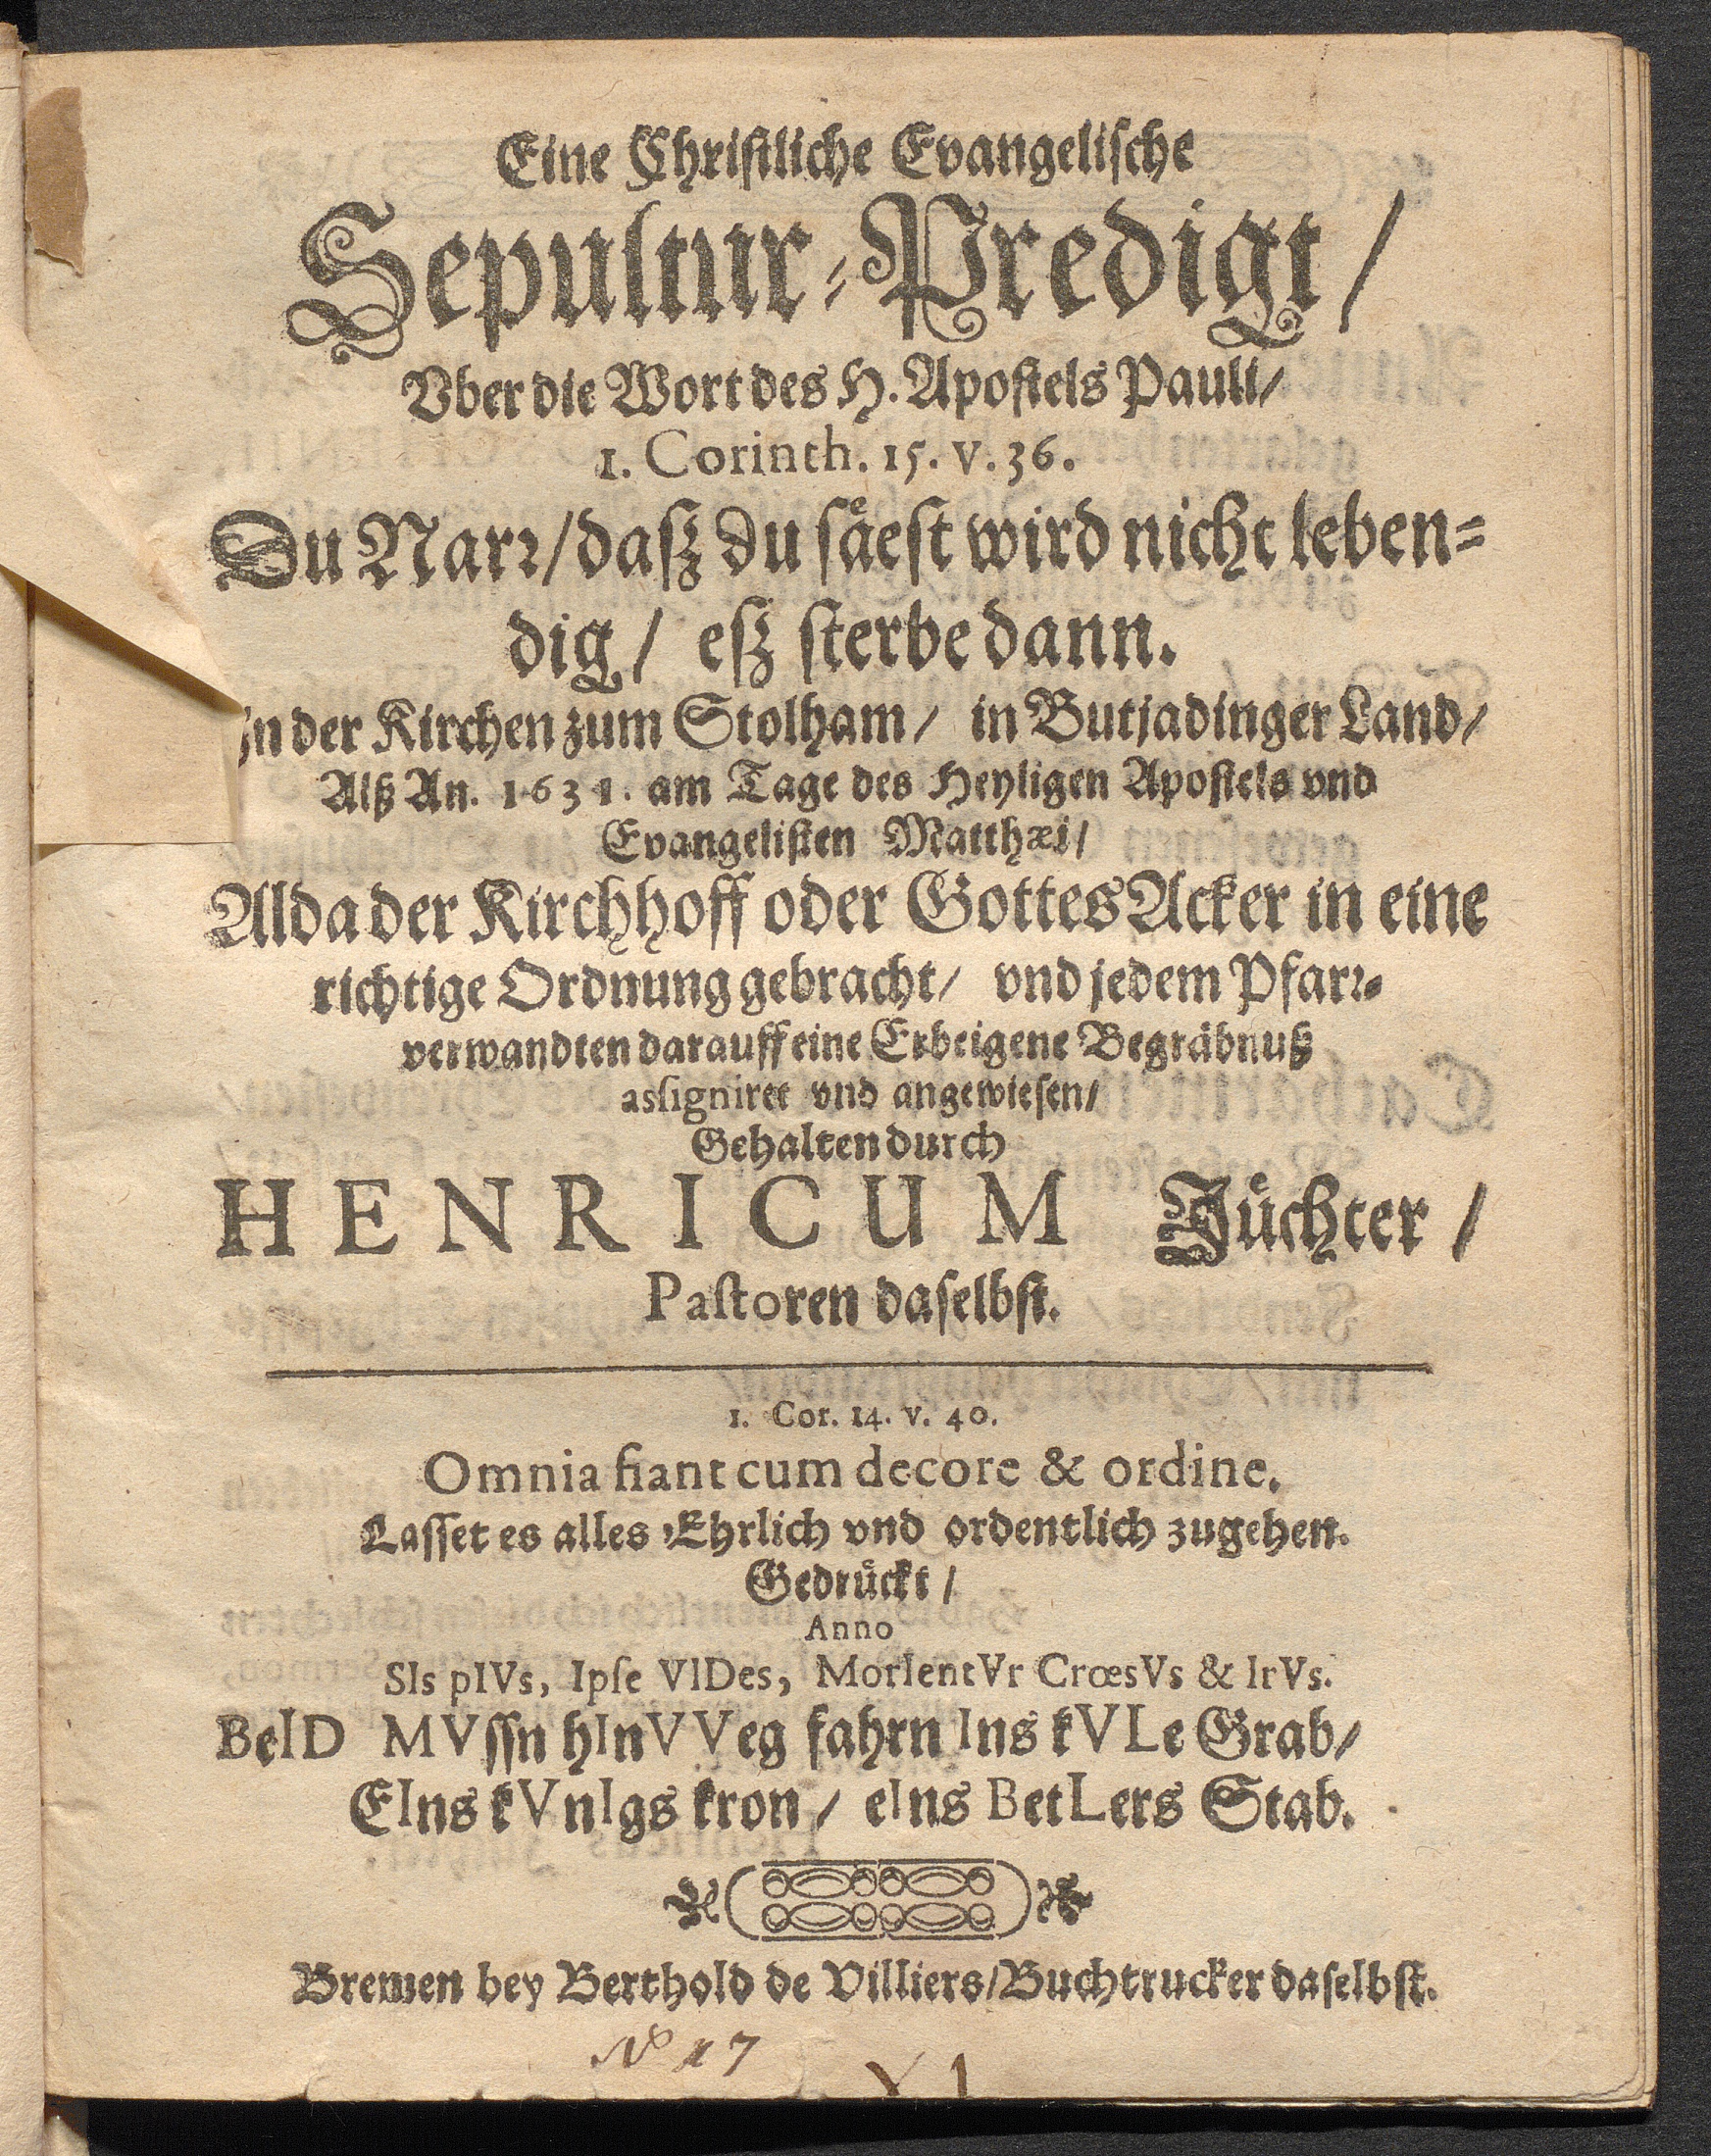 Eine Chriſtliche Evangeliſche
Sepultur-Predigt/
Vber die Wort des H. Apoſtels Pauli/
1. Corinth. 15. v. 36.
Du Narꝛ/daſz du ſaͤeſt wird nicht leben-
dig/ eſz ſterbe dann.
In der Kirchen zum Stolham/ in Butjadinger Land/
Alß An. 1631. am Tage des Heyligen Apoſtels vnd
Evangeliſten Matthæi/
Alda der Kirchhoff oder GottesAcker in eine
richtige Ordnung gebracht/ vnd jedem Pfarꝛ-
verwandten darauff eine Erbeigene Begraͤbnuß
aſsigniret vnd angewieſen/
Gehalten durch
HENRICUM Juͤchter/
Paſtoren daſelbſt.
1. Cor. 14. v. 40.
Omnia fiant cum decore & ordine.
Laſſet es alles Ehrlich vnd ordentlich zugehen.
Gedruͤckt/
Anno
SIs pIVs, Ipſe VIDes, MorIentVr CrœsVs & IrVs.
BeID MVſſn hInVVeg fahrn Ins kVLe Grab/
EIns kVnIgs kron/ eIns BetLers Stab.
Bremen bey Berthold de Villiers/Buchtrucker daſelbſt.
No 17